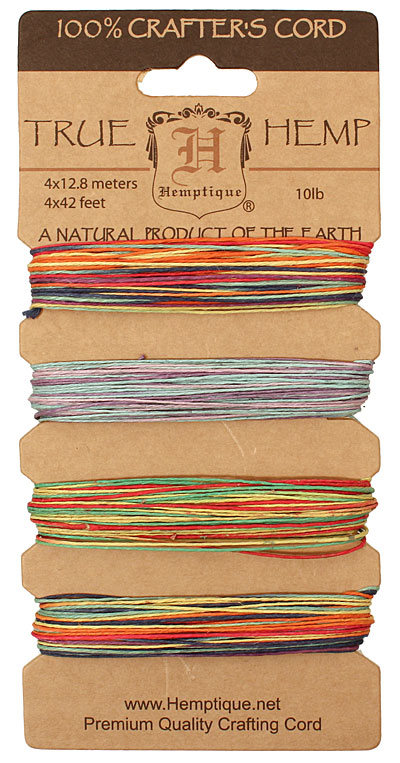 100% CRAFTER'S CORD
TRUE HEMP
H
4x12.8 meters
4x42 feet
Hemptique
®
10lb
A NATURAL PRODUCT OF THE EARTH
www.Hemptique.net
Premium Quality Crafting Cord